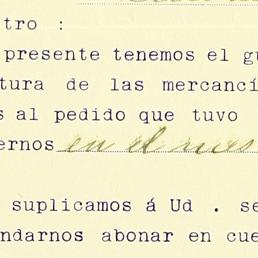 tro :
presente tenemos el gu
tura de las mercancí
s al pedido que tuvo
ernos en el mes
suplicamos á Ud . se
ndarnos abonar en cue